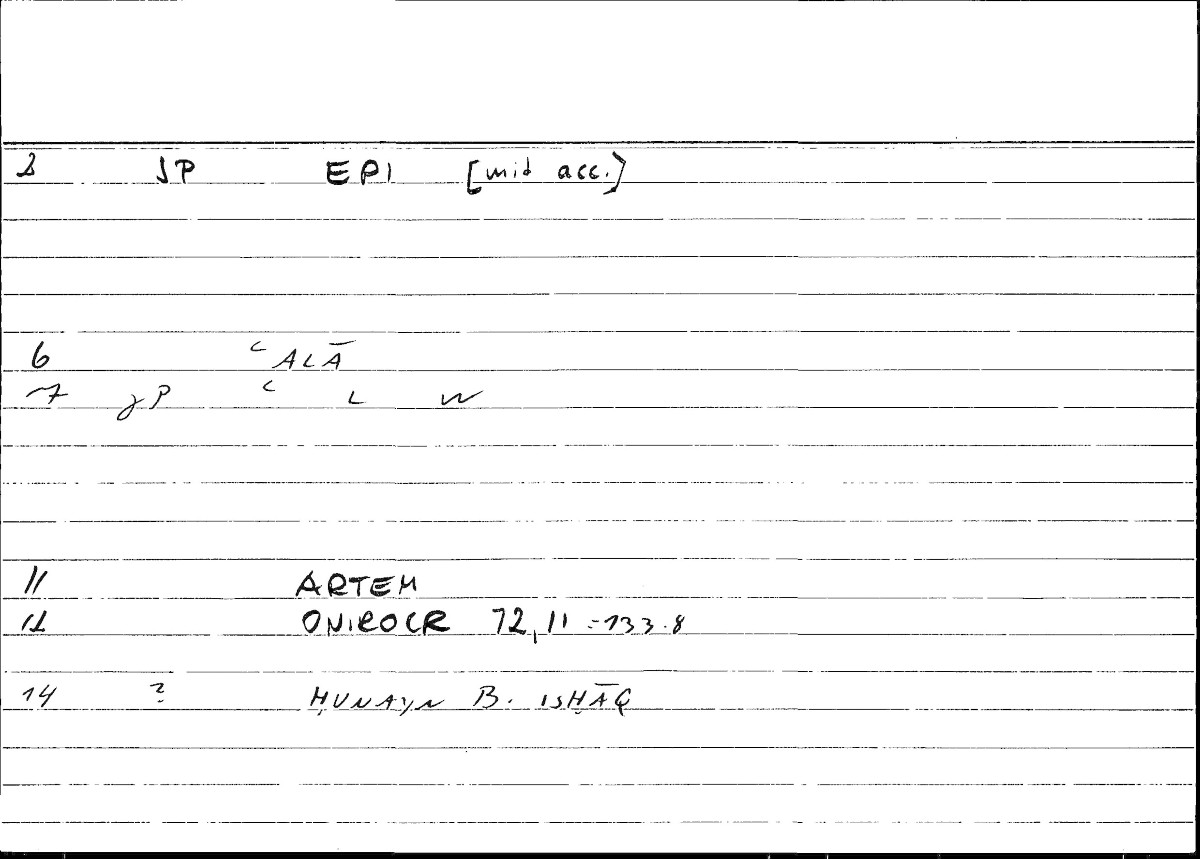 2 JP EPI [mid acc.]
6 ʿALĀ
7 gP ʿ L W
11 ARTEM
12 ONIROCR 72,11 = 133.8
14 ? ḤUNAYN B. ISḤĀQ